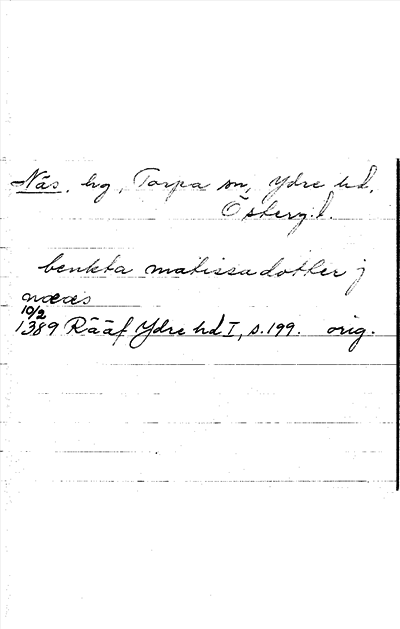 Näs. hg, Torpa sn, Ydre hd,
Österg. l.
benkta matissadotter j
næræs
10/2
1389 Rääf Ydre hd I, s. 199. orig.